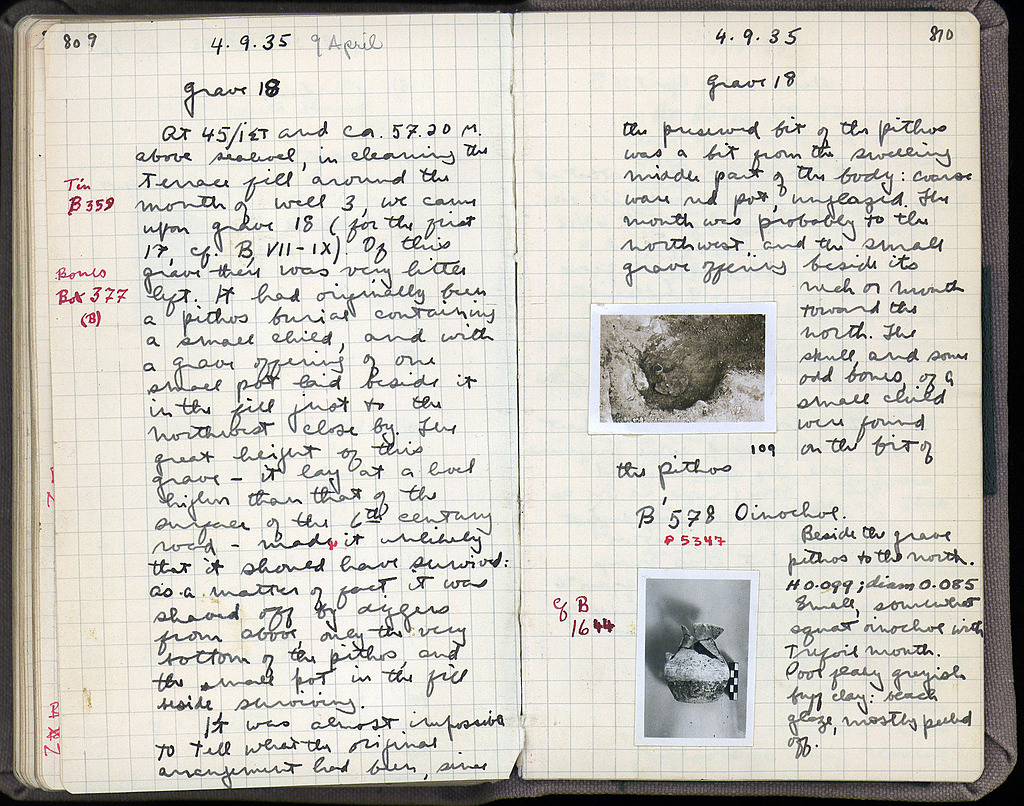 809
4.9.35 9 April
grave 18
At 45/ΙΣΤ and ca. 57.20 M.
above sealevel, in cleaning the
Terrace fill around the
mouth of well 3, we came
upon grave 18 (for the first
17, cf. B, VII-IX). Of this
grave there was very little
left. It had originally been
a pithos burial containing
a small child, and with
a grave offering of one
small pot laid beside it
in the fill just to the
northwest close by. The
great height of this
grave - it lay at a level
higher than that of the
surface of the 6th century
road - made it unlikely
that it should have survived:
as a matter of fact it was
shaved off by diggers
from above, only the very
bottom of the pithos and
the small pot in the fill
beside surviving.
It was almost impossible
to tell what the original
arrangement had been, since
Tin
B 359
Bones
Box 377
(B)
4.9.35
810
grave 18
the preserved bit of the pithos
was a bit from the swelling
middle part of the body: coarse
ware red pot, unglazed. The
mouth was probably to the
northwest and the small
grave offering beside its
neck or mouth
toward the
north. The
skull, and some
odd bones, of a
small child
were found
on the bit of
109
the pithos
B 578 Oinochoe.
P 5347
Beside the grave
pithos to the north.
H 0.099; diam 0.085
Small, somewhat
squat oinochoe with
Trefoil mouth.
Poor flaky greyish
buff clay: black
glaze, mostly peeled
off.
cf B
16